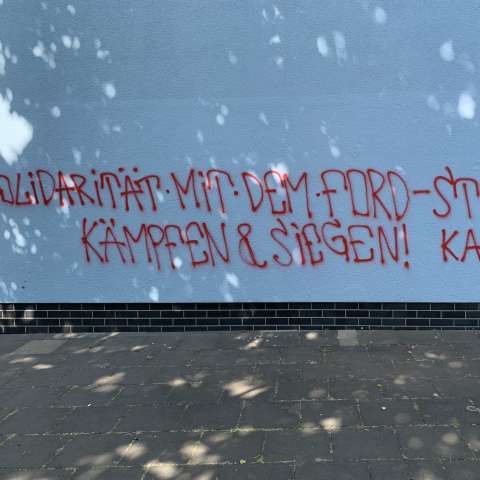 OLiDARiTÄT·MiT·DEM·FORD-ST
KÄMPFEN & SiEGEN! KA